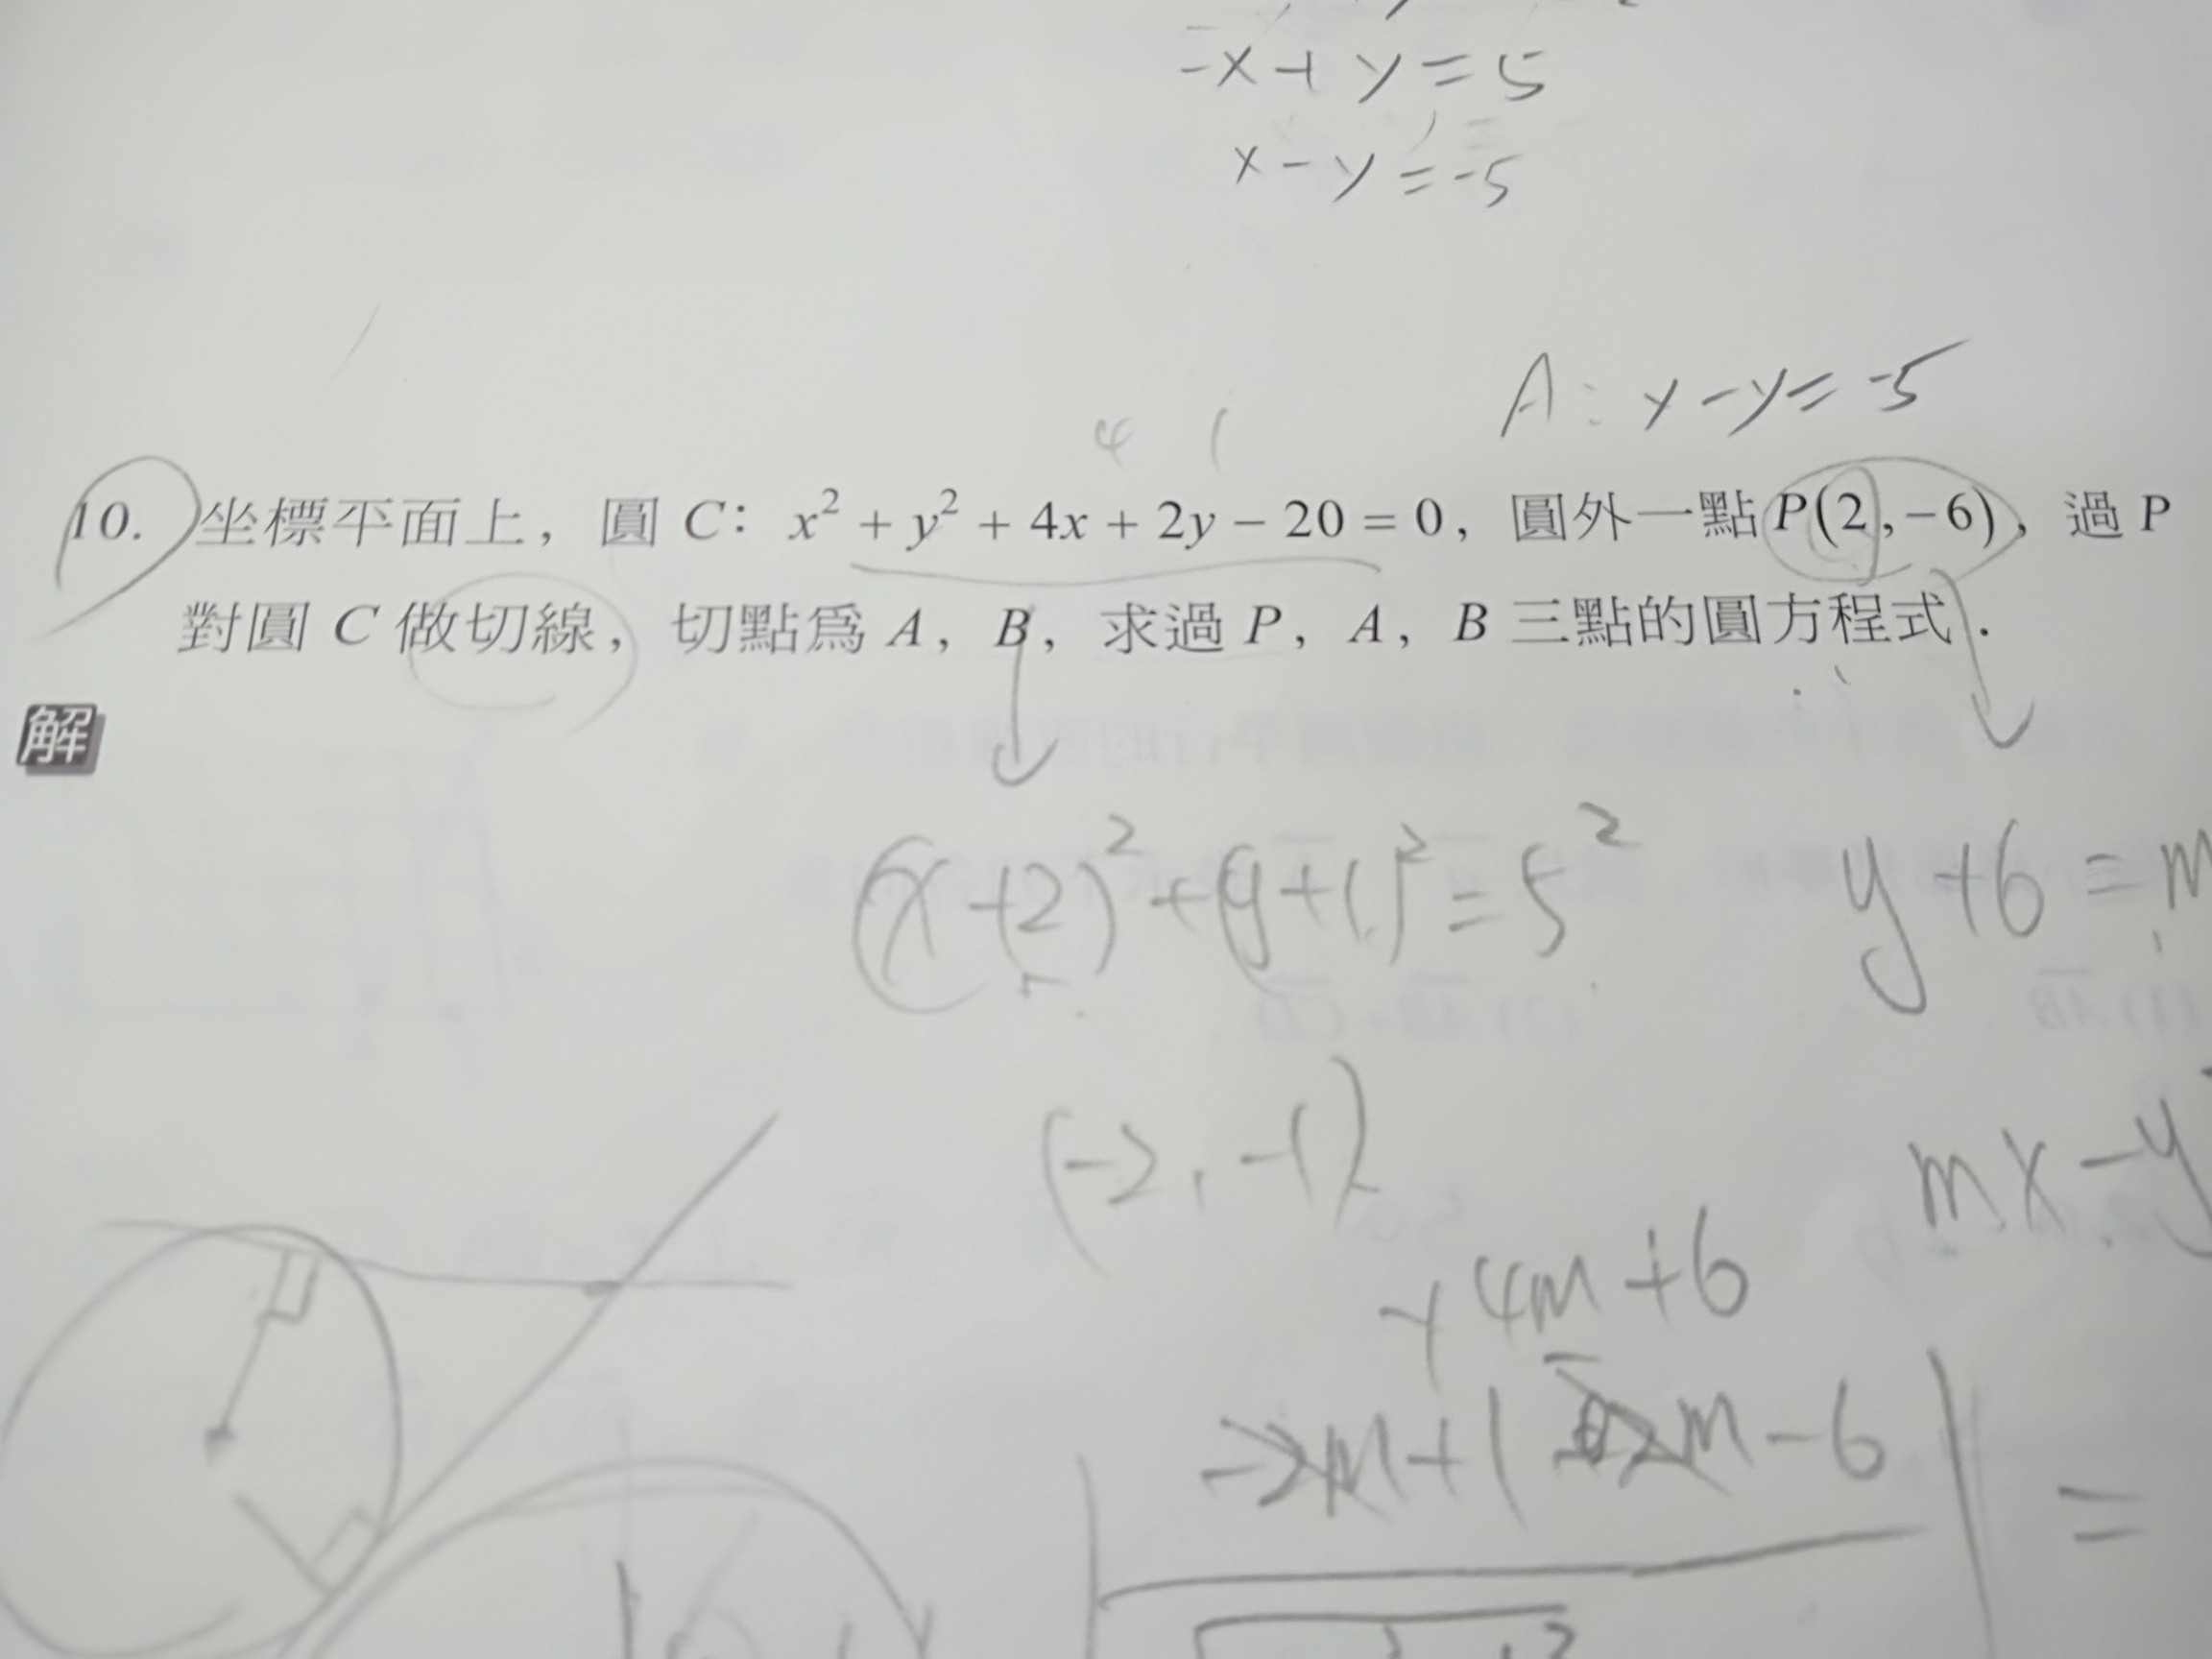 -x+y=5
x-y=-5
A: x-y=-5
4 1
10. 坐標平面上，圓 C：x²+y²+4x+2y-20=0，圓外一點 P(2,-6)，過 P
對圓 C 做切線，切點為 A，B，求過 P，A，B 三點的圓方程式．
解
(x+2)²+(y+1)²=5² y+6=m
(-2,-1) mx-y
+4m+6
-2m+1 m-6 =